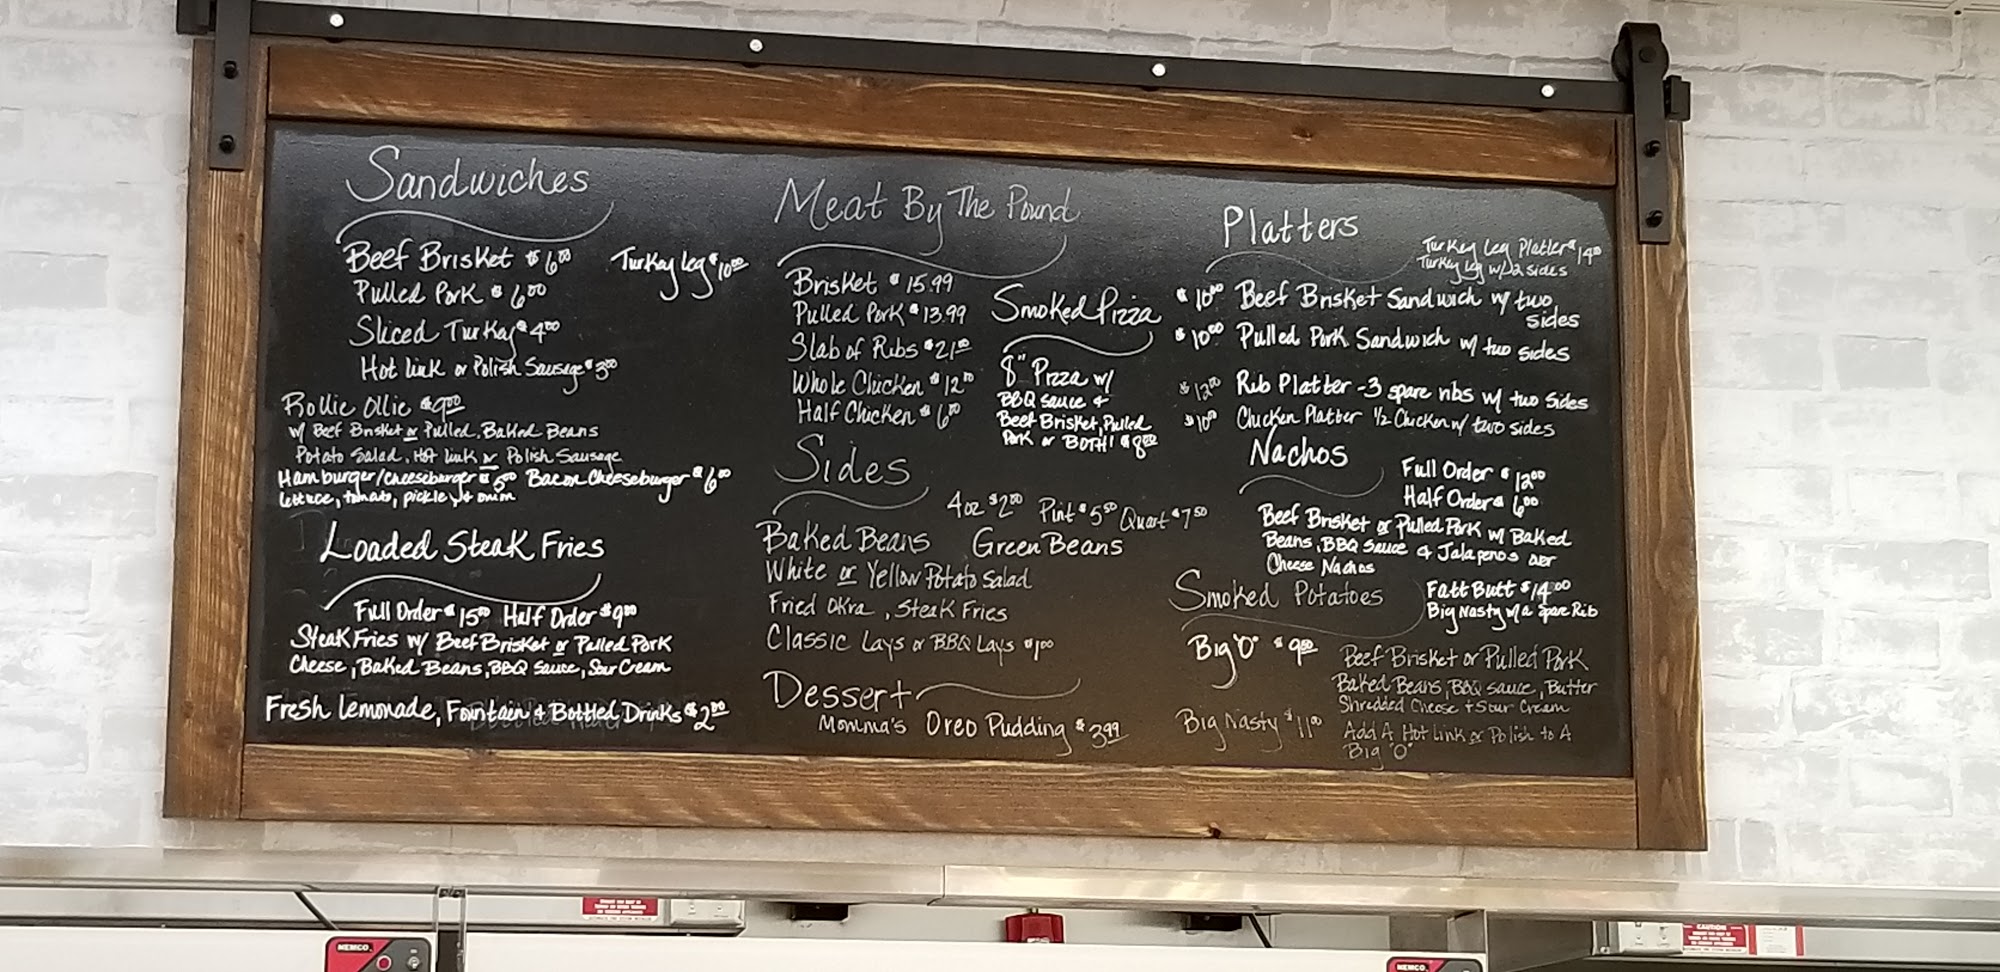 Sandwiches
Beef Brisket $6.00
Turkey Leg $10.00
Pulled Pork $6.00
Sliced Turkey $4.00
Hot link or Polish Sausage $3.00
Rollie Ollie $9.00
w/ Beef Brisket or Pulled, Baked Beans
Potato Salad, Hot link or Polish Sausage
Hamburger/Cheeseburger $5.00 Bacon Cheeseburger $6.00
lettuce, tomato, pickle, + onion
Loaded Steak Fries
Full Order $15.00 Half Order $9.00
Steak Fries w/ Beef Brisket or Pulled Pork
Cheese, Baked Beans, BBQ Sauce, Sour Cream
Fresh Lemonade, Fountaen & Bottled Drinks $2.00
Meat By The Pound
Brisket $15.99
Pulled Pork $13.99
Slab of Ribs $21.00
Whole Chicken $12.00
Half Chicken $6.00
Smoked Pizza
8" Pizza w/
BBQ Sauce &
Beef Brisket, Pulled
Pork or BOTH! $8.00
Sides
4oz $2.00 Pint $5.50 Quart $7.50
Baked Beans Green Beans
White or Yellow Potato Salad
Fried Okra, Steak Fries
Classic Lays or BBQ Lays $1.00
Dessert
Momma's Oreo Pudding $3.99
Platters
Turkey Leg Platter $14.00
Turkey leg w/2 sides
$10.00 Beef Brisket Sandwich w/ two
sides
$10.00 Pulled Pork Sandwich w/ two sides
$12.00 Rib Platter - 3 spare ribs w/ two sides
$10.00 Chicken Platter 1/2 Chicken w/ two sides
Nachos
Full Order $12.00
Half Order $6.00
Beef Brisket or Pulled Pork w/ Baked
Beans, BBQ Sauce & Jalapenos over
Cheese Nachos
Smoked Potatoes
Fatt Butt $14.00
Big Nasty w/ a Spare Rib
Big "O" $9.00
Beef Brisket or Pulled Pork
Baked Beans, BBQ Sauce, Butter
Shredded Cheese + Sour Cream
Big Nasty $11.00
Add A Hot Link or Polish to A
Big "O"
NEMCO
CAUTION
NEMCO